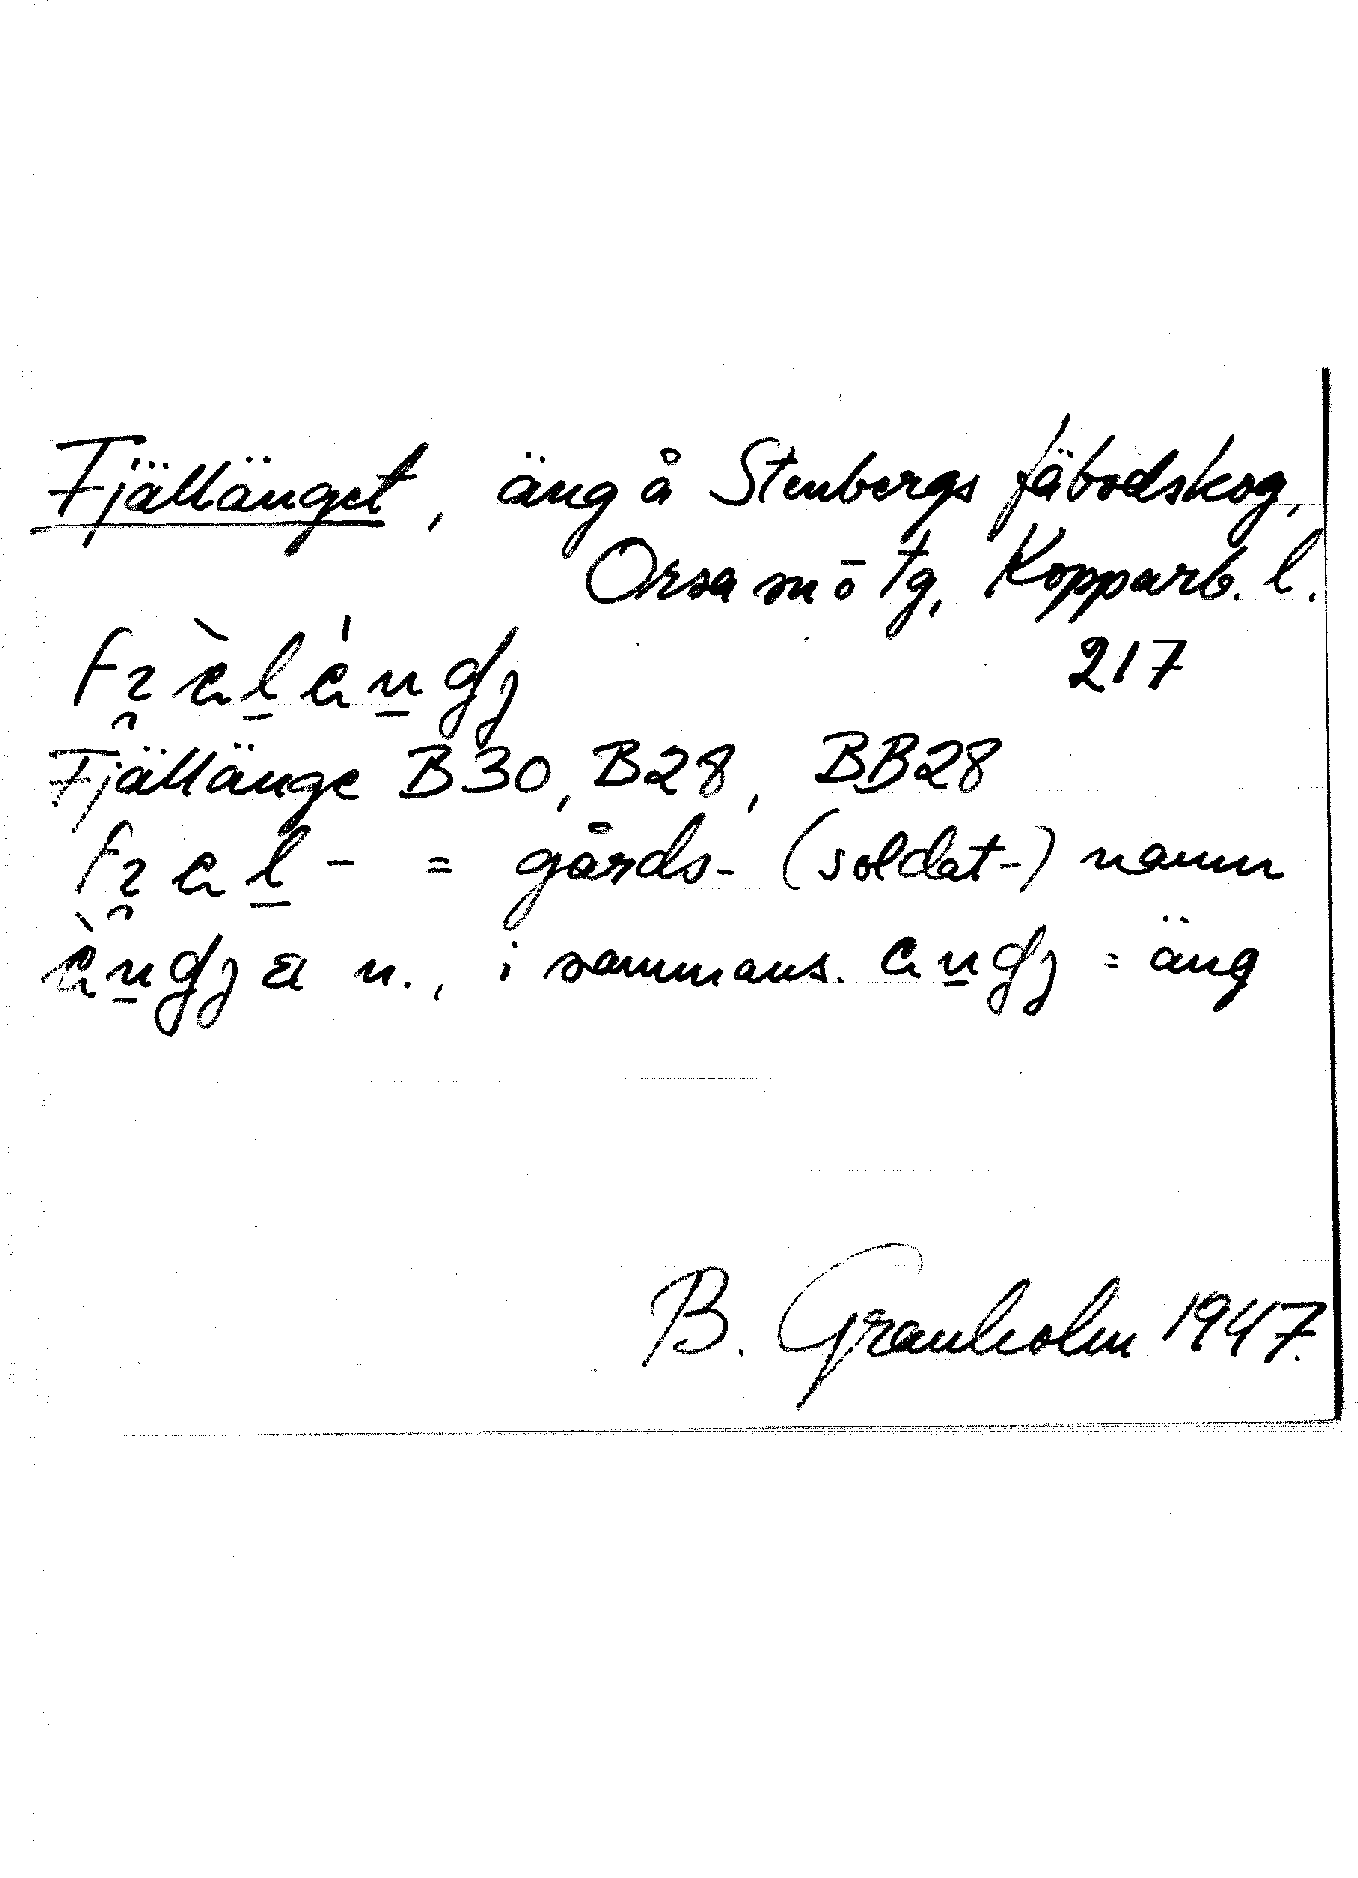 Fjällänget, äng å Stenbergs fäbodskog,
Orsa sn ō tg, Kopparb. l.
217
Fjällänge B30, B28, BB28
= gårds- (soldat-) namn
n., i sammans. = äng
B. Granholm 1947.